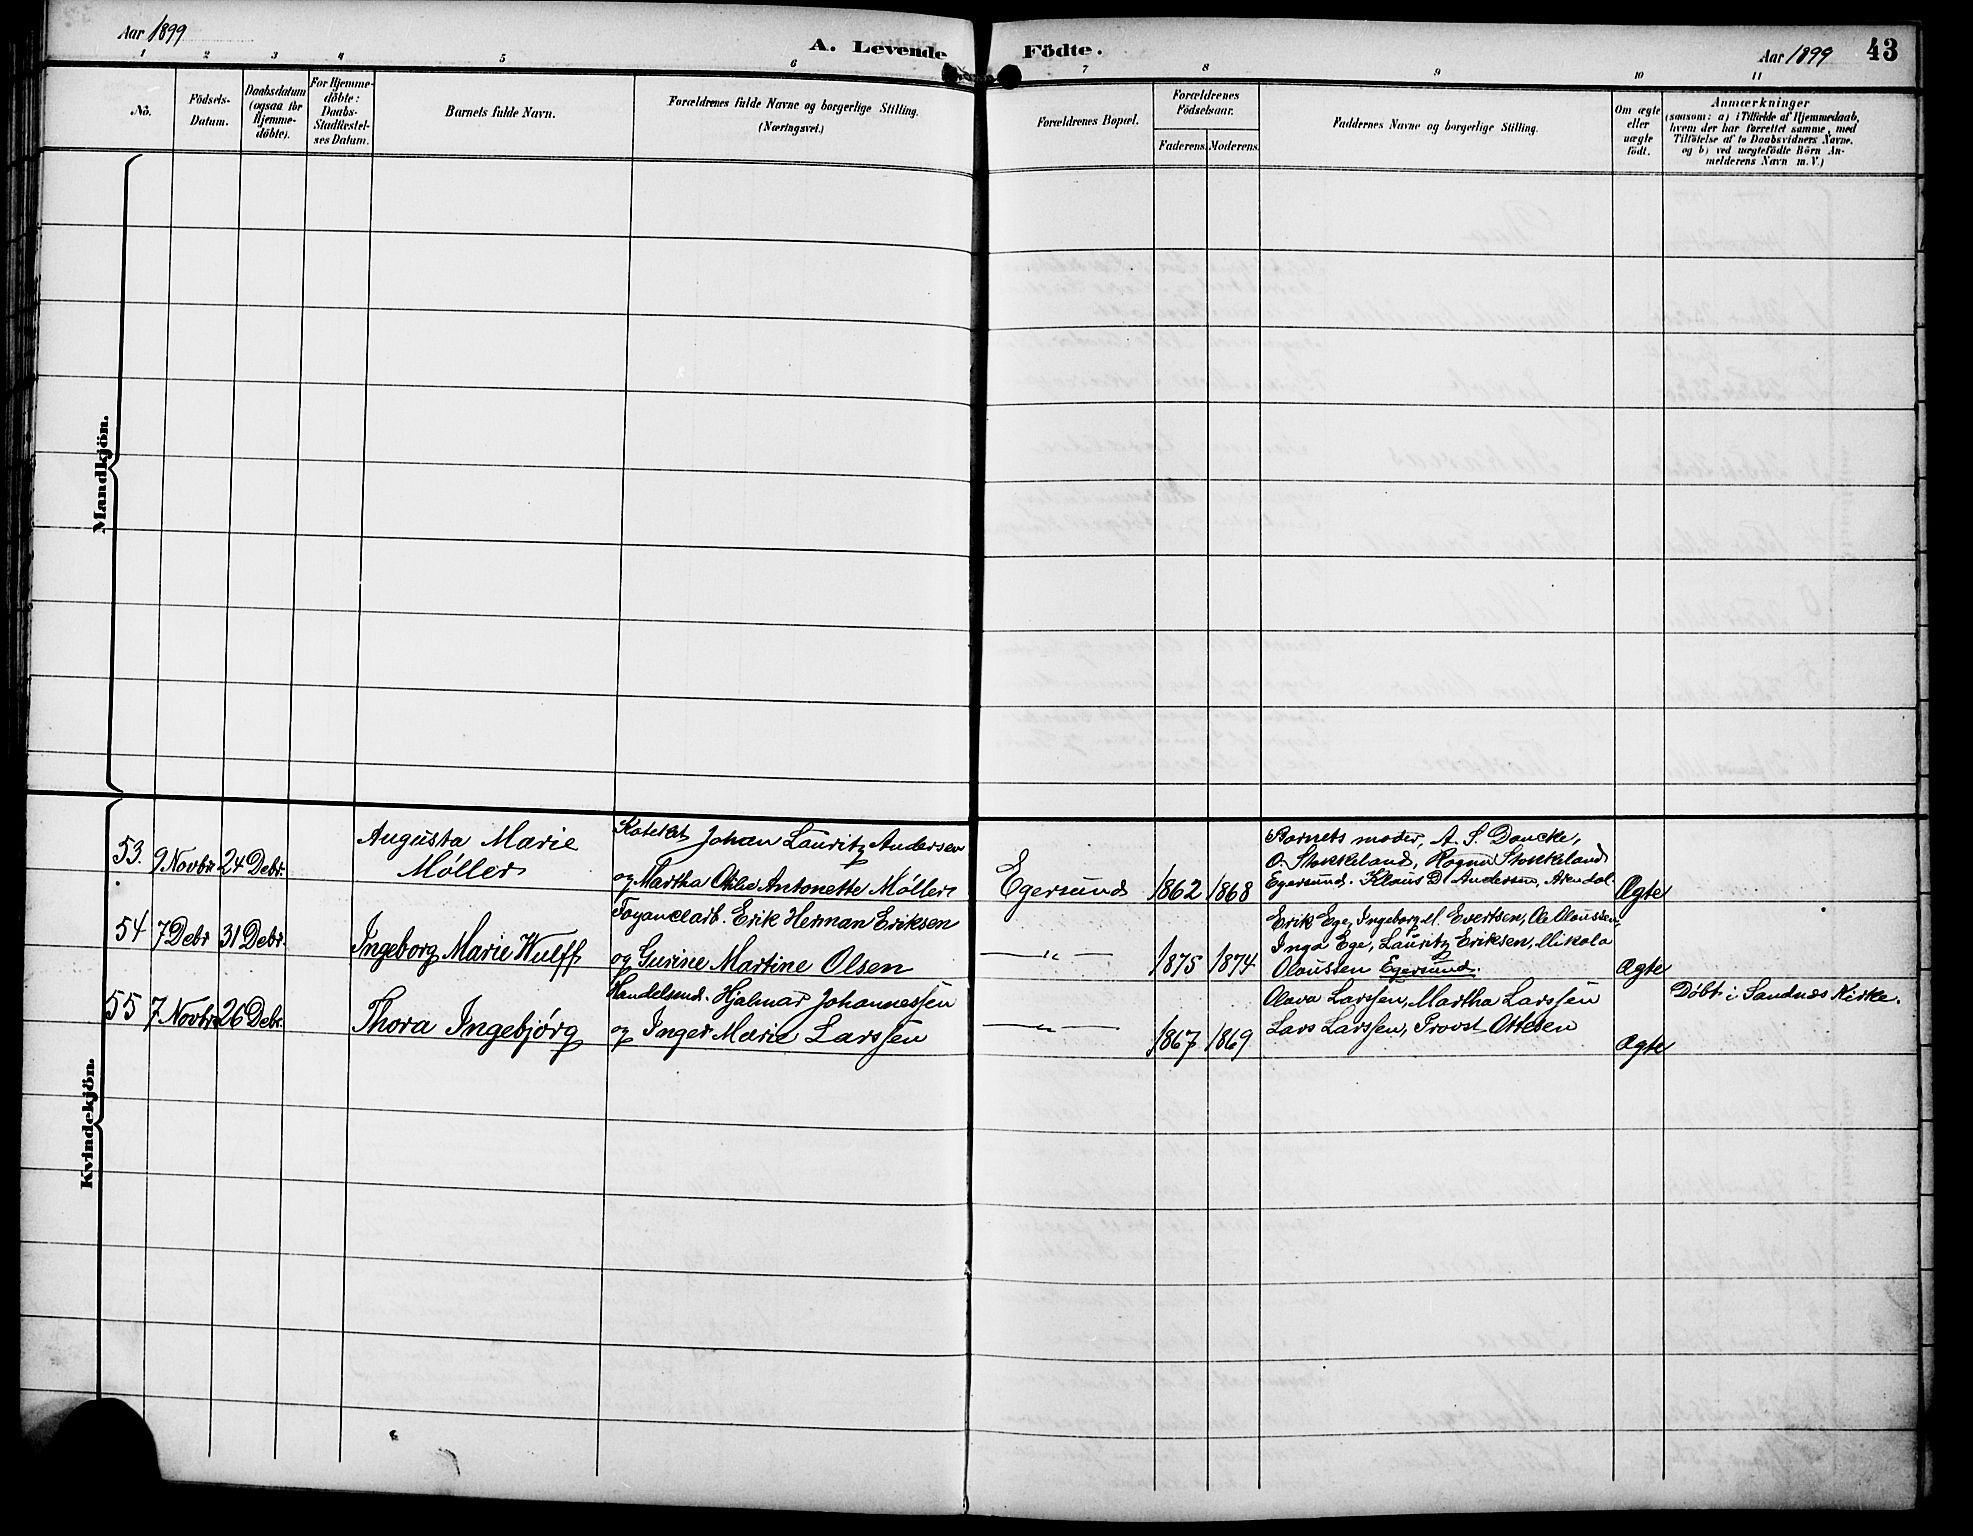 Aar 1899
A. Levende Födte.
Aar 1899 43
1 2 3 4 5 6 7 8 9 10 11
No.
Födsels-
Datum.
Daabsdatum
(ogsaa for
Hjemme-
döbte).
For Hjemme-
döbte:
Daabs-
Stadfæstel-
ses Datum.
Barnets fulde Navn.
Forældrenes fulde Navne og borgerlige Stilling.
(Næringsvei.)
Forældrenes Bopæl.
Forældrenes
Födselsaar.
Faderens. Moderens.
Faddernes Navne og borgerlige Stilling.
Om ægte
eller
uægte
födt.
Anmærkninger
(saasom: a) i Tilfælde af Hjemmedaab,
hvem der har forrettet samme, med
Tilföielse af to Daabsvidners Navne,
og b) ved uægtefödte Börn An-
melderens Navn m. V.)
Mandkjön.
Kvindekjön.
53. 9 Novbr 24 Debr.
Augusta Marie
Møller
Kateket Johan Lauritz Andersen
og Martha Otilie Antonette Møller
Egersund 1862 1868
Barnets moder, A. S. Doncke,
O. Stokkeland, Ragna Stokkeland
Egersund. Klaus D. Andersen, Arendal
Ægte
54 7 Debr 31 Debr.
Ingeborg Marie Wulff
Fayancearb. Erik Herman Eriksen
og Gurine Martine Olsen
—〃— 1875 1874
Erik Ege, Ingeborg M. Evertsen, Ol. Olaussen,
Inga Ege, Lauritz Eriksen, Nikola
Olaussen Egersund.
Ægte
55 7 Novbr 26 Debr.
Thora Ingebjørg
Handelsmd. Hjalmar Johannessen
og Inger Marie Larssen
—〃— 1867 1869
Olava Larssen, Martha Larssen
Lars Larssen, Provst Ottesen
Ægte
Døbt i Sandnes Kirke.